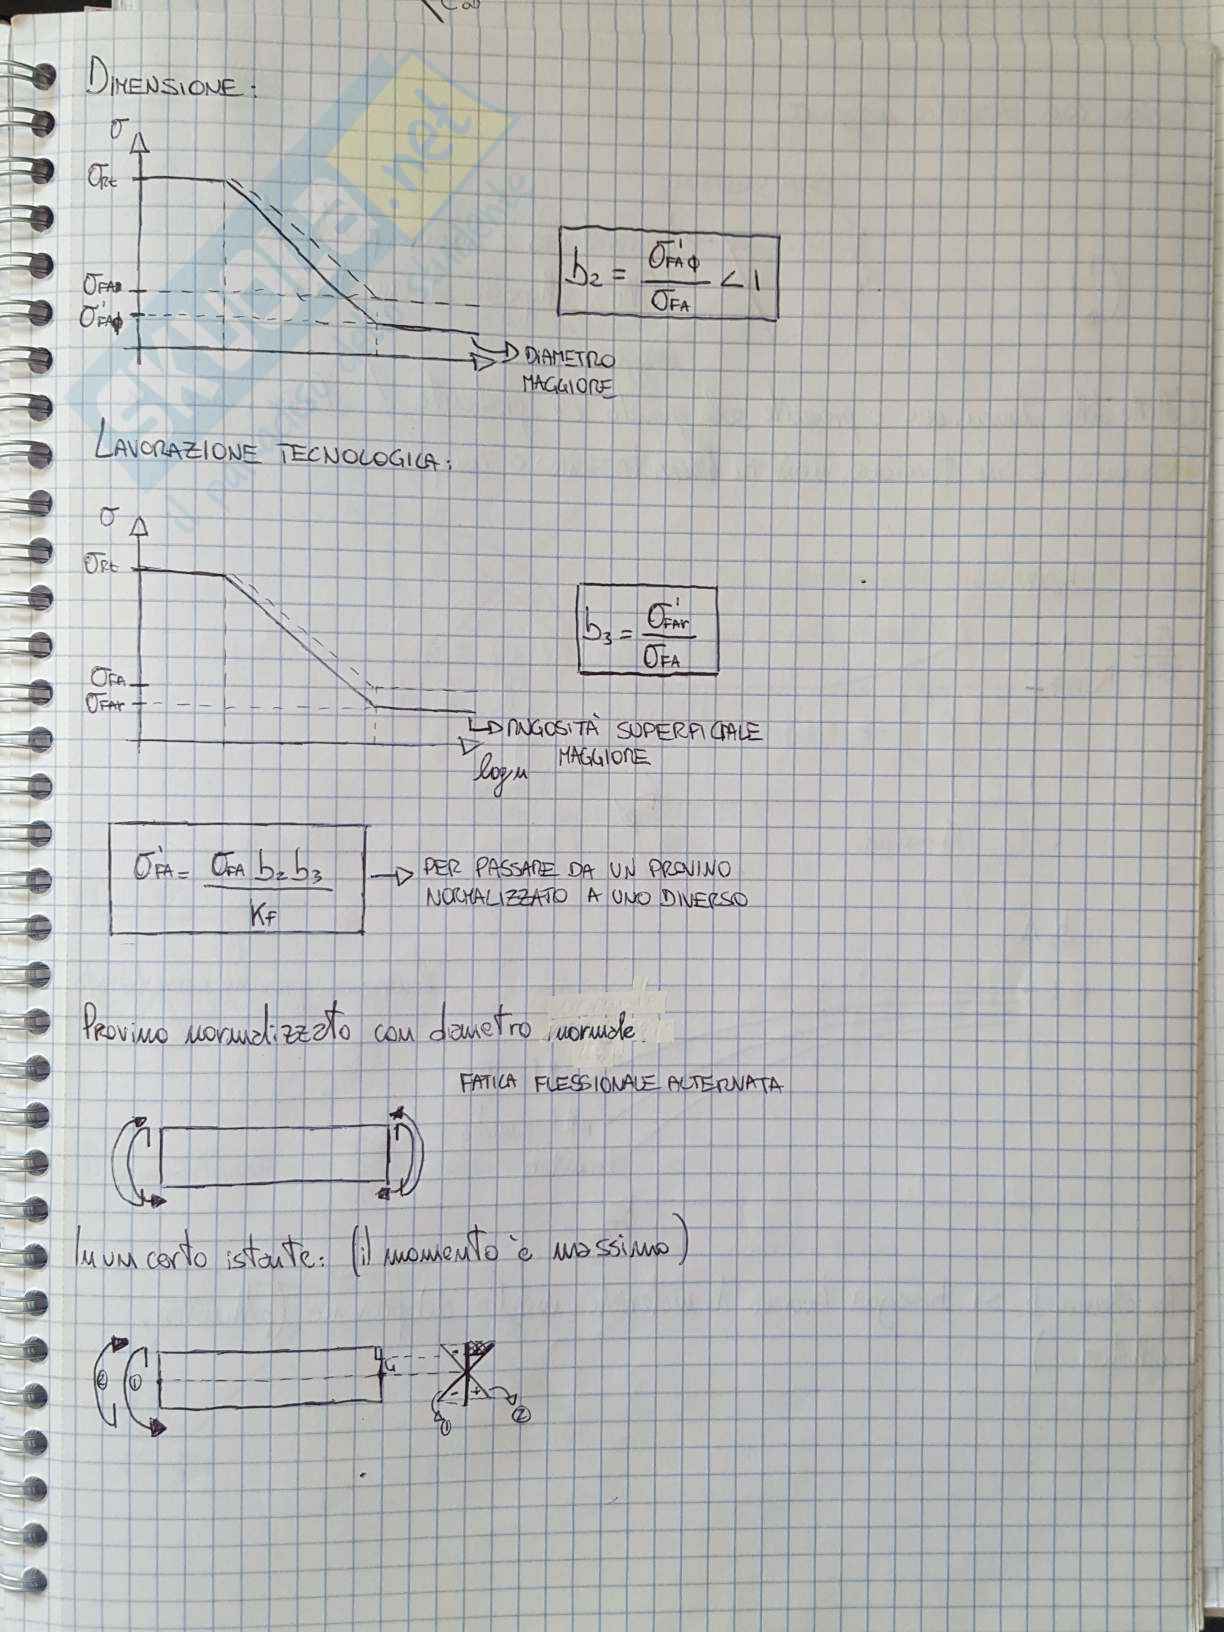 DIMENSIONE:
σ
σRt
σFA
σ'FAϕ
b2 = σ'FAϕ / σFA < 1
DIAMETRO
MAGGIORE
LAVORAZIONE TECNOLOGICA:
σ
σRt
σFA
σFAr
b3 = σ'FAr / σFA
RUGOSITÀ SUPERFICIALE
MAGGIORE
log n
σ'FA = σFA b2 b3 / KF
PER PASSARE DA UN PROVINO
NORMALIZZATO A UNO DIVERSO
Provino normalizzato con diametro normale.
FATICA FLESSIONALE ALTERNATA
In un certo istante: (il momento è massimo)
2 1
G
- +
- +
1 2
skuola.net